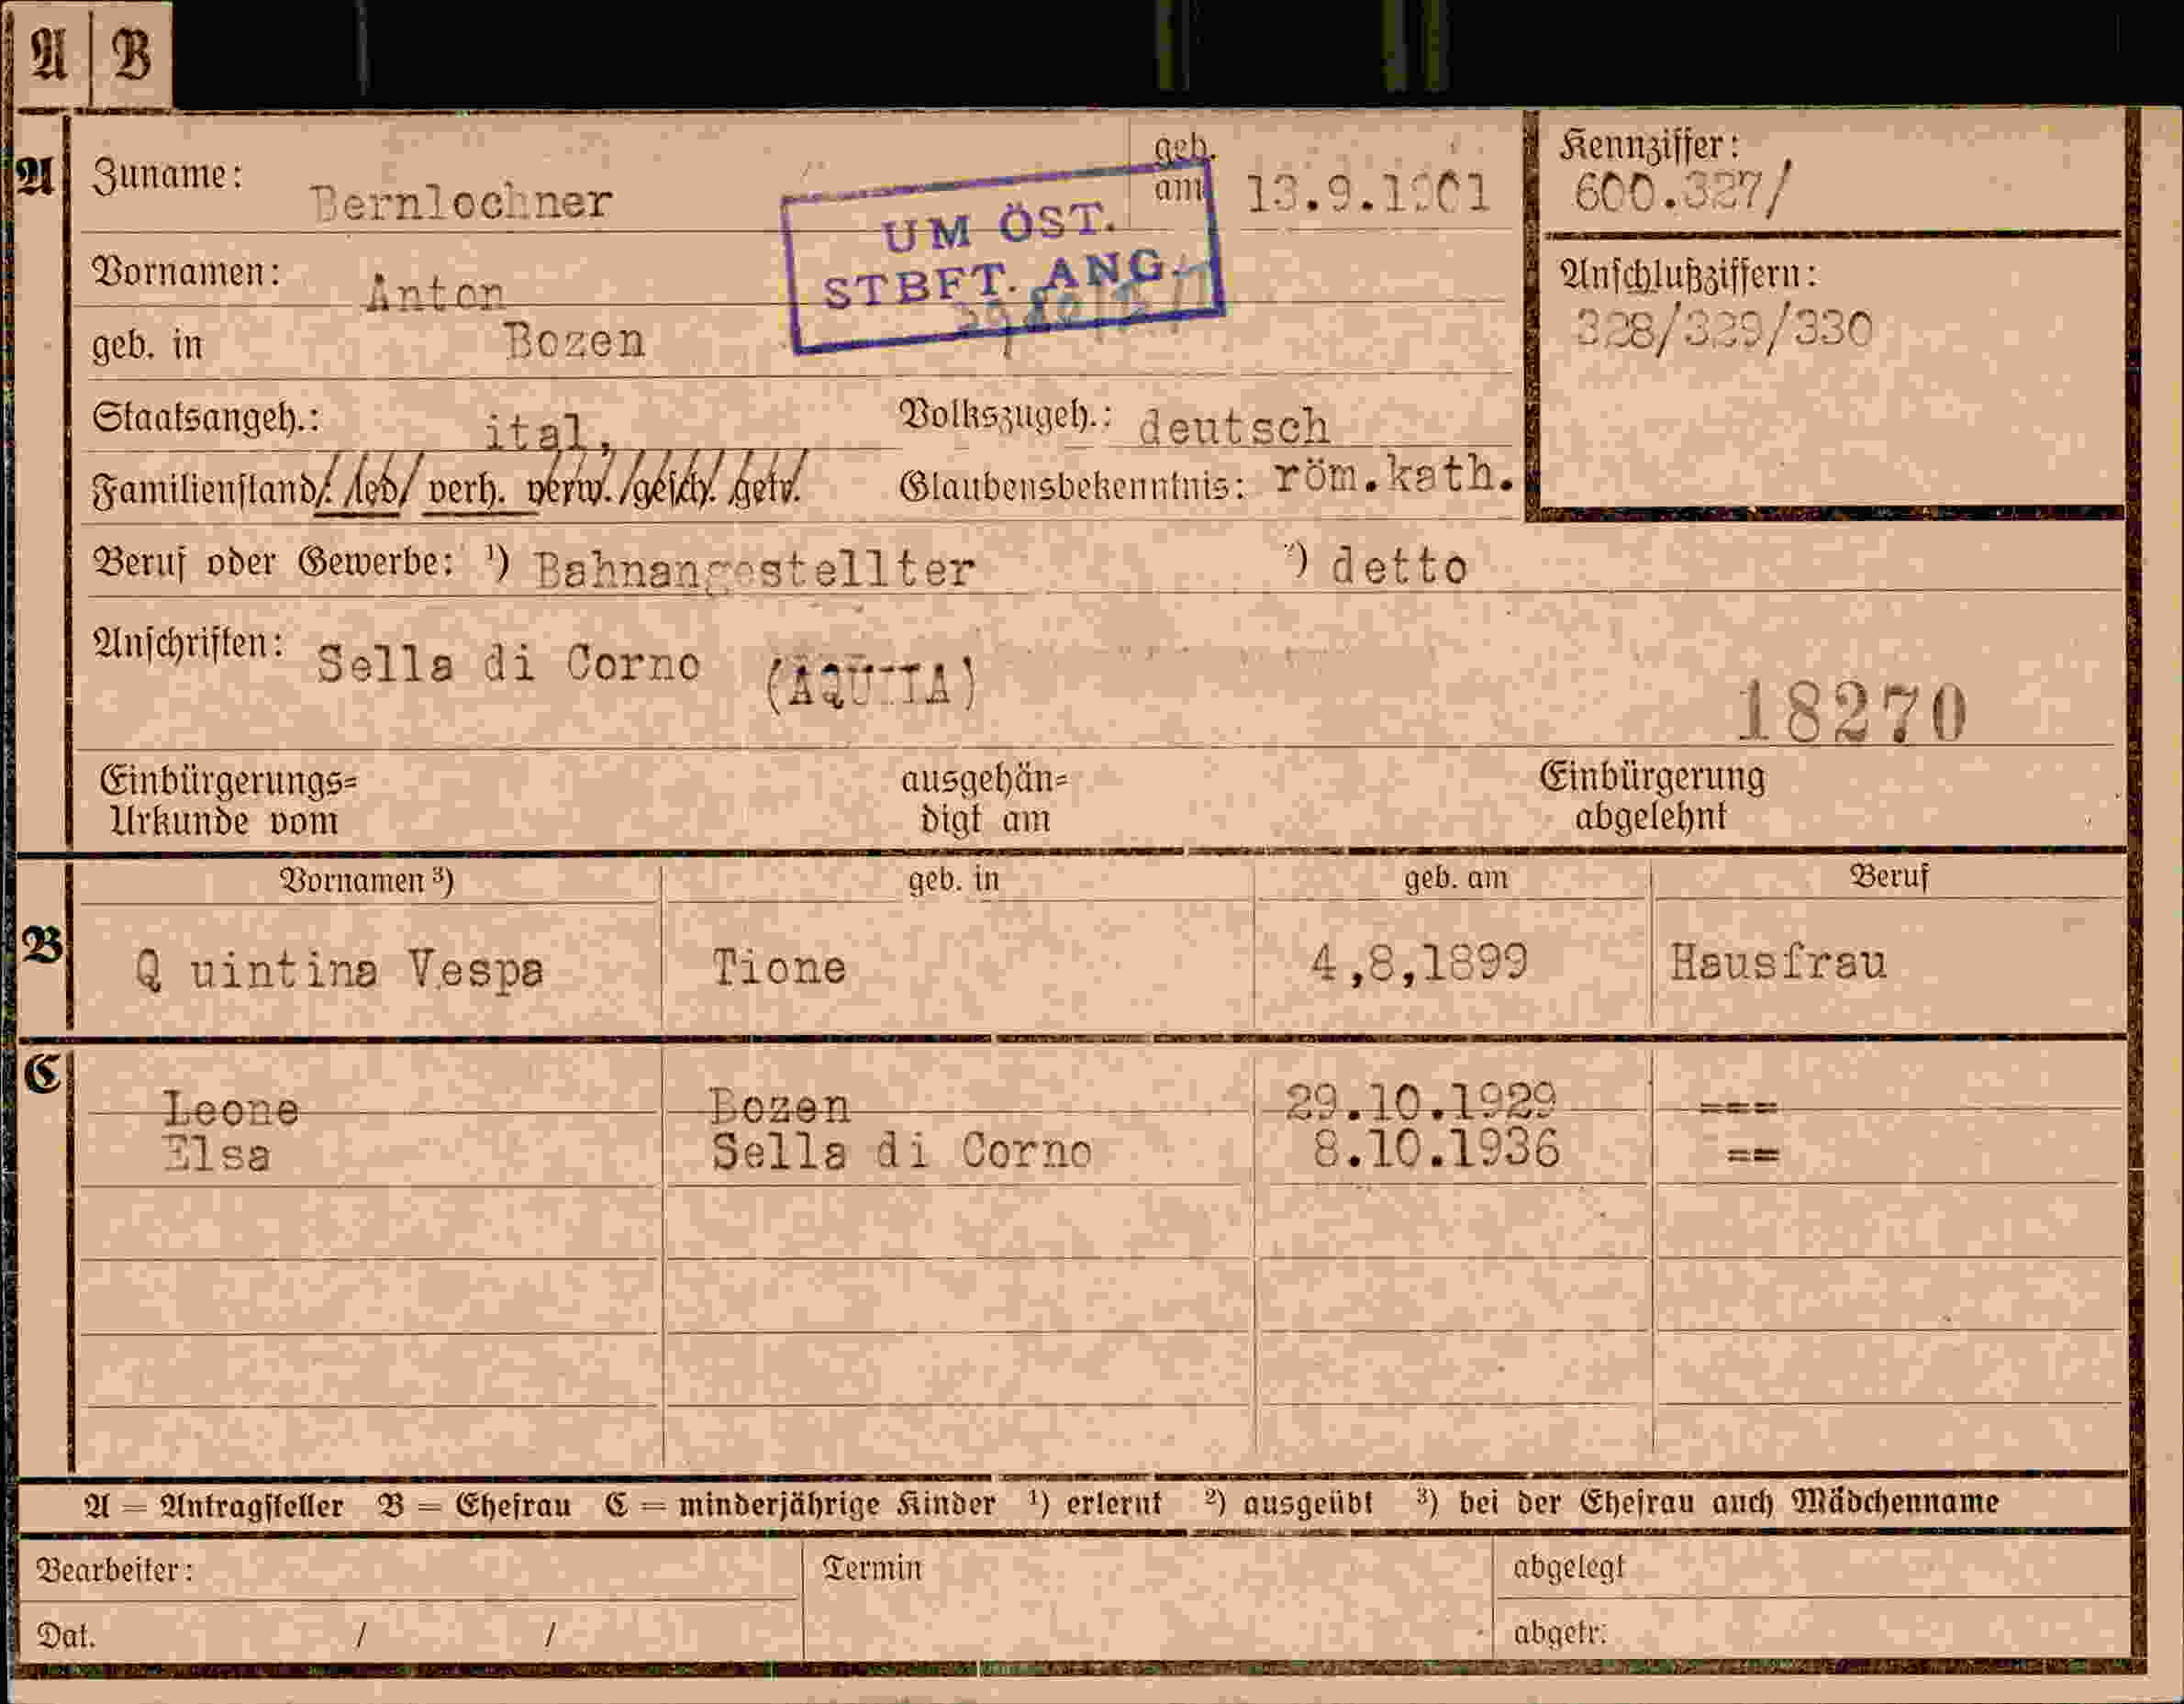 A B
A Zuname: Bernlochner geb. am 13.9.1901 Kennziffer: 600.327/
UM ÖST.
STBFT. ANG.
Vornamen: Anton Anschlußziffern: 328/329/330
geb. in Bozen
Staatsangeh.: ital, Volkszugeh.: deutsch
Familienstand: led verh. verw. gesch. getr. Glaubensbekenntnis: röm.kath.
Beruf oder Gewerbe: ¹) Bahnangestellter ²) detto
Anschriften: Sella di Corno
18270
Einbürgerungs= ausgehän= Einbürgerung
Urkunde vom digt am abgelehnt
Vornamen ³) geb. in geb. am Beruf
B Q uintina Vespa Tione 4,8,1899 Hausfrau
C
Leone Bozen 29.10.1929 ===
Elsa Sella di Corno 8.10.1936 ==
A = Antragsteller B = Ehefrau C = minderjährige Kinder ¹) erlernt ²) ausgeübt ³) bei der Ehefrau auch Mädchenname
Bearbeiter: Termin abgelegt
Dat. / / abgetr.